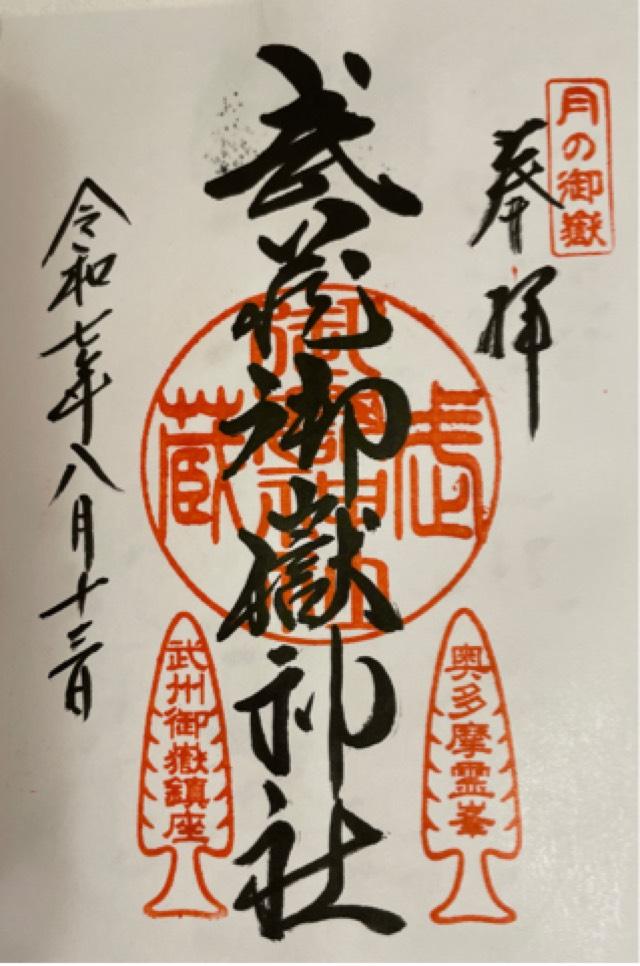 月の御嶽
奉拝
奥多摩霊峯
武蔵御嶽神社
武蔵
御嶽神社
武州御嶽鎮座
令和七年八月十三日